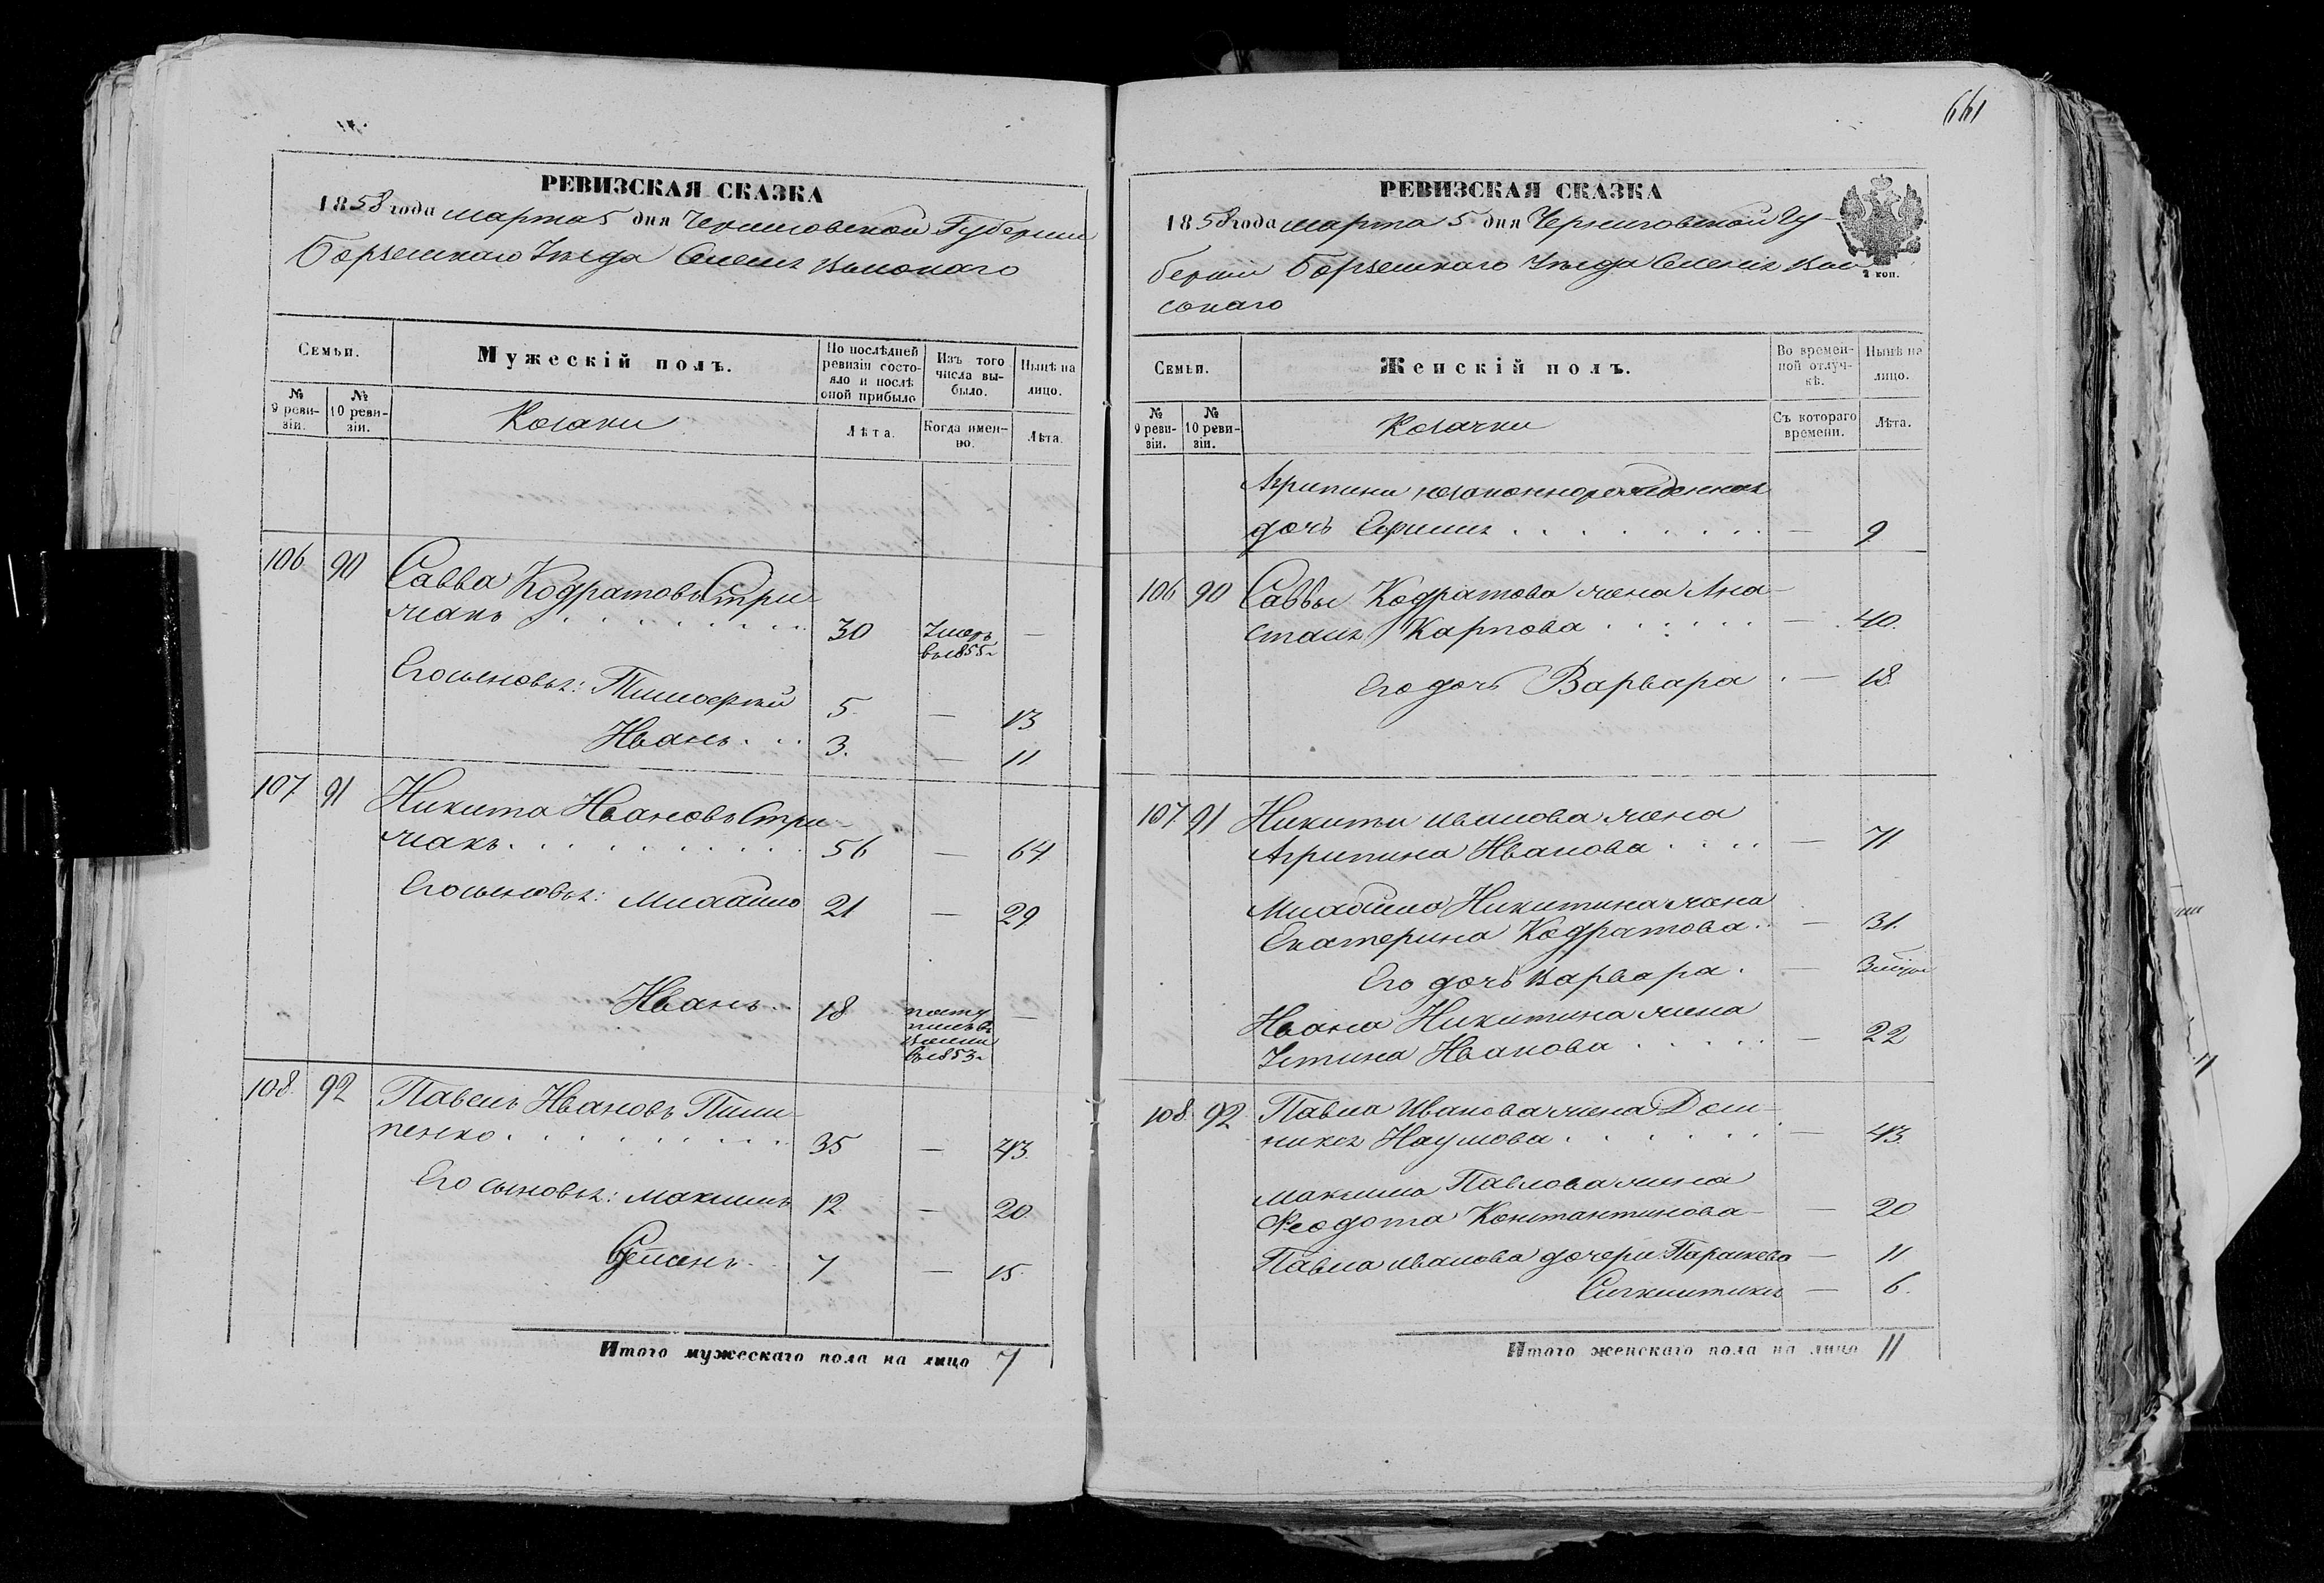 661
РЕВИЗСКАЯ СКАЗКА
1858 года марта 5 дня Черниговской Губернии
Борзенскаго Уезда Селенія Высокаго
Семьи.
Мужескій полъ.
По послѣдней ревизіи состояло и послѣ оной прибыло
Изъ того числа выбыло.
Нынѣ на лицо.
№ 9 ревизіи.
№ 10 ревизіи.
Козаки
Лѣта.
Когда именно.
Лѣта.
106 90 Савва Кодратовъ Стри-
жакъ 30 Умеръ —
в 1855г
Его сыновья: Тимофей 5. — 13
Иванъ 3. — 11
107 91 Никита Ивановъ Стри-
жакъ 56 — 64
Его сыновья: Михайло 21 — 29
Иванъ 18 —
в 1853г
108. 92 Павелъ Ивановъ Пили-
пенко 35 — 43.
Его сыновья: Максимъ 12 — 20.
Семенъ 7 — 15.
Итого мужескаго пола на лицо 7
РЕВИЗСКАЯ СКАЗКА
1858 года марта 5 дня Черниговской Гу-
берніи Борзенскаго Уезда Селенія Вы-
сокаго
2 коп.
Семьи.
Женскій полъ.
Во временной отлучкѣ.
Нынѣ на лицо.
№ 9 ревизіи.
№ 10 ревизіи.
Козачки
Съ котораго времени.
Лѣта.
Агрипини незаконнорожденная
дочь Ефимия — 9
106 90 Саввы Кодратова жена Ана-
стасия Карпова — 40.
Его дочь Варвара — 18.
107. 91 Никиты Иванова жена
Агрипина Иванова — 71
Михайла Никитина жена
Екатерина Кодратова — 31.
Его дочь Варвара —
Ивана Никитина жена
Устина Иванова — 22
108. 92. Павла Иванова жена Дом-
никия Наумова — 43.
Максима Павлова жена
Феодота Константинова — 20
Павла Иванова дочери Параскева — 11
— 6.
Итого женскаго пола на лицо 11